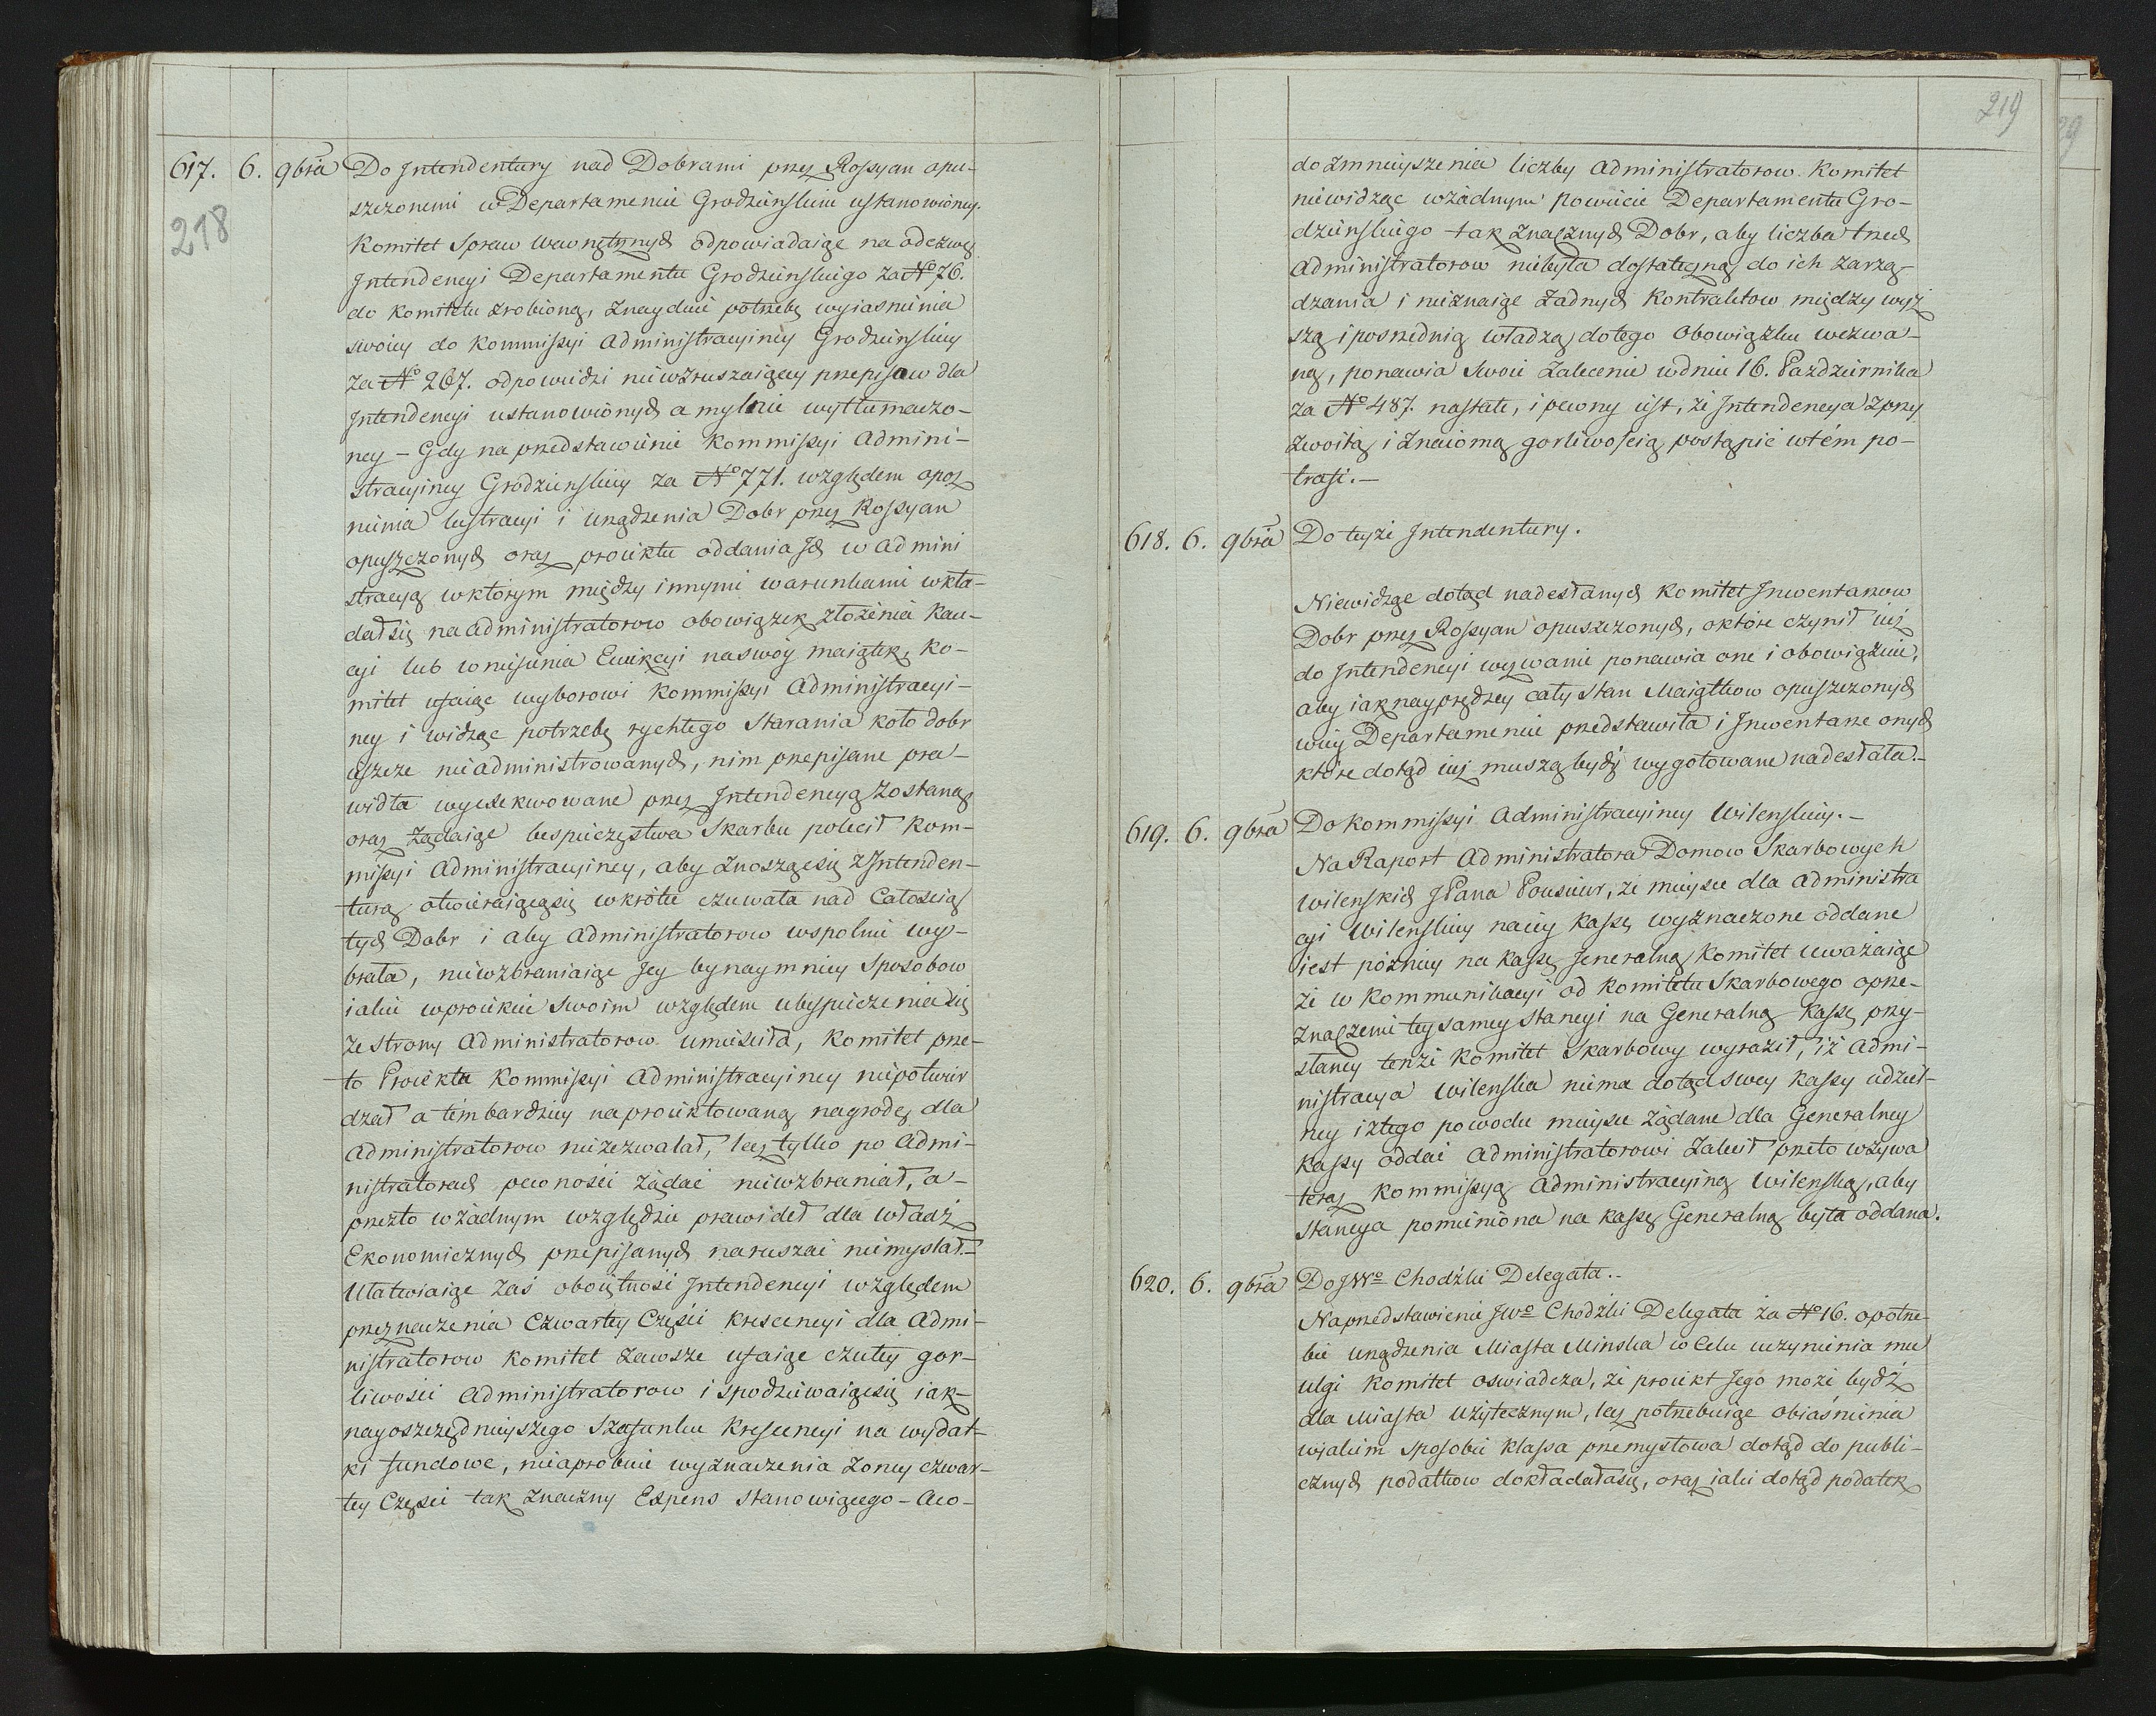 617. 6. 9bra Do Jntendentury nad Dobrami przez Rossyan opu-
218
szczonemi w Departamencie Grodzieńskim ustanowioney.
Komitet Spraw wewnętrznych odpowiadaiąc na odezwę
Jntendencyi Departamentu Grodzieńskiego za No 76.
do Komitetu zrobioną, znayduie potrzebę wyiasnienia
swoiey do Kommissyi Administracyiney Grodzieńskiey
za No 267. odpowiedzi niewzruszaiącey przepisow dla
Jntendencyi ustanowionych a mylnie wytłumaczo-
ney – Gdy na przedstawienie Kommissyi Admini-
stracyiney Grodzieńskiey za No 771. względem opoz
nienia lustracyi i urządzenia Dobr przez Rossyan
opuszczonych oraz proiektu oddania Jch w Admini
stracyą w ktorym między innymi warunkami wkła-
dał się na Administratorow obowiązek złożenia Kau-
cyi lub wniesienia Ewikcyi na swóy maiątek, Ko-
mitet ufaiąc wyborowi Kommissyi Administracyi-
ney i widząc potrzebę rychłego Starania koło dobr
ieszcze nieadministrowanych, nim przepisane pra-
widła wyexekwowane przez Jntendencyą zostaną
oraz żądaiąc bespieczęstwa Skarbu polecił Kom-
missyi Administracyiney, aby znosząc się z Jntenden-
turą otwieraiącą się wkrótce czuwała nad Całoscią
tych Dobr i aby Administratorow wspolnie wy-
brała, niewzbraniaiąc Jey bynaymniey Sposobow
iakie w proiekcie Swoim względem ubespieczenia się
ze strony Administratorow umieściła, Komitet prze-
to Proiektu Kommissyi Administracyiney niepotwier
dzał a tém bardziey na proiektowaną nagrodę dla
Administratorow niezezwalał, lecz tylko po Admi-
nistratorach pewności żądać niewzbraniał, a-
przeto w żadnym względzie prawideł dla władz
Ekonomicznych przepisanych naruszać niemyślał.–
Ułatwiaiąc zaś oboiętność Jntendencyi względem
przeznaczenia Czwartey Części Krescencyi dla Admi-
nistratorow Komitet zawsze ufaiąc czułey gor-
liwości Administratorow i spodziewaiąc się iak-
nayoszczędnieyszego Szafunku Krescencyi na wydat-
ki fundowe, nieaprobuie wyznaczenia Żoney czwar-
tey Części tak znaczny Expens stanowiącego – a co-
219
do zmnieyszenia liczby Administratorow. Komitet
niewidząc w żadnym powiecie Departamentu Gro-
dzieńskiego tak znacznych Dobr, aby liczba trzech
Administratorow niebyła dostateczną do ich zarzą-
dzania i nieznaiąc żadnych Kontraktow między wyż
szą i posrzednią władzą do tego Obowiązku wezwa-
ną, ponawia Swoie zalecenie w dniu 16. Pazdziernika
za No 487. nastałe, i pewny iest, że Jntendencya z przy
zwoitą i znaiomą gorliwoscią postąpić w tém po-
trafi.–
618. 6. 9bra Do teyże Jntendentury.
Niewidząc dotąd nadesłanych Komitet Jnwentarzow
Dobr przez Rossyan opuszczonych, o które czynił iuż
do Jntendencyi wezwanie ponawia one i obowiązuie,
aby iak nayprędzey cały stan Maiątkow opuszczonych
w iey Departamencie przedstawiła i Jnwentarze onych
które dotąd iuż muszą bydź wygotowane nadesłała.–
619. 6. 9bra Do Kommissyi Administracyiney Wilenskiey.–
Na Raport Administratora Domow Skarbowych
Wilenskich JPana Pousieur, że mieysce dla Administra
cyi Wilenskiey na iey Kassę wyznaczone oddane
iest pózniey na Kassę Jeneralną Komitet uważaiąc
że w Kommunikacyi od Komitetu Skarbowego o prze-
znaczeniu teysamey Stancyi na Generalną Kassę przy-
słaney tenże Komitet Skarbowy wyraził, iż Admi-
nistracya Wilenska niema dotąd swey Kassy udziel-
ney i z tego powodu mieysce żądane dla Generalney
Kassy oddać Administratorowi zalecił przeto wzywa
teraz Kommissyą Administracyiną Wilenską, aby
Stancya pomieniona na Kassę Generalną była oddana.
620. 6. 9bra Do JWo Chodźki Delegata.–
Na przedstawienie JWo Chodźki Delegata za No 16. o potrze-
bie urządzenia Miasta Minska w Celu uczynienia mu
ulgi Komitet oswiadcza, że proiekt Jego może bydź
dla Miasta użytecznym, lecz potrzebuiąc obiaśnienia
w iakim sposobie Klassa przemysłowa dotąd do publi-
cznych podatkow dokładała się, oraz iaki dotąd podatek